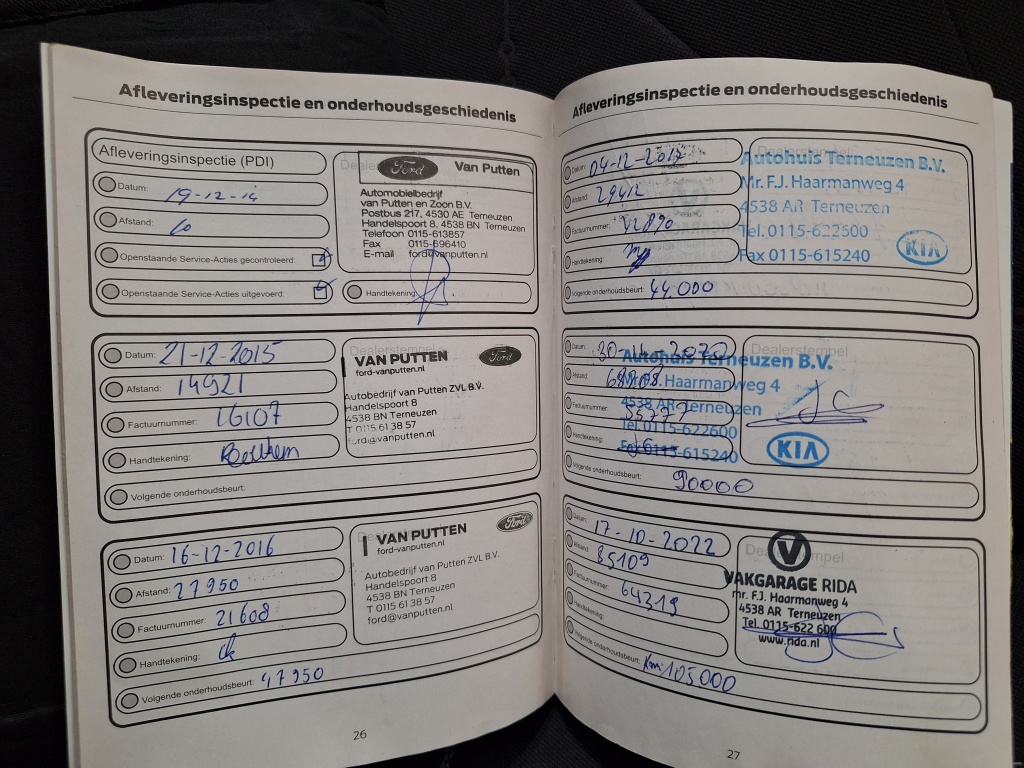 Afleveringsinspectie en onderhoudsgeschiedenis
Afleveringsinspectie (PDI)
Datum: 19-12-14
Afstand: 10
Openstaande Service-Acties gecontroleerd:
Openstaande Service-Acties uitgevoerd:
Ford Van Putten
Automobielbedrijf
van Putten en Zoon B.V.
Postbus 217, 4530 AE Terneuzen
Handelspoort 8, 4538 BN Terneuzen
Telefoon 0115-613857
Fax 0115-696410
E-mail ford@vanputten.nl
Handtekening:
Datum: 21-12-2015
Afstand: 14921
Factuurnummer: 16107
Handtekening:
Volgende onderhoudsbeurt:
Dealerstempel
VAN PUTTEN Ford
ford-vanputten.nl
Autobedrijf van Putten ZVL B.V.
Handelspoort 8
4538 BN Terneuzen
T 0115 61 38 57
ford@vanputten.nl
Datum: 16-12-2016
Afstand: 27950
Factuurnummer: 21608
Handtekening:
Volgende onderhoudsbeurt: 47950
VAN PUTTEN Ford
ford-vanputten.nl
Autobedrijf van Putten ZVL B.V.
Handelspoort 8
4538 BN Terneuzen
T 0115 61 38 57
ford@vanputten.nl
26
Afleveringsinspectie en onderhoudsgeschiedenis
Datum: 04-12-2017
Afstand: 29412
Factuurnummer:
Handtekening:
Volgende onderhoudsbeurt: 44.000
Dealerstempel
Autohuis Terneuzen B.V.
Mr. F.J. Haarmanweg 4
4538 AR Terneuzen
Tel. 0115-622600
Fax 0115-615240
KIA
Datum: 30-11-2020
Afstand:
Factuurnummer:
Handtekening:
Volgende onderhoudsbeurt: 90000
Dealerstempel
Autohuis Terneuzen B.V.
Mr. F.J. Haarmanweg 4
4538 AR Terneuzen
Tel. 0115-622600
Fax 0115-615240
KIA
Datum: 17-10-2022
Afstand: 85109
Factuurnummer: 64319
Handtekening:
Volgende onderhoudsbeurt: Km: 105000
Dealerstempel
VAKGARAGE RIDA
mr. F.J. Haarmanweg 4
4538 AR Terneuzen
Tel. 0115-622 600
www.rida.nl
27